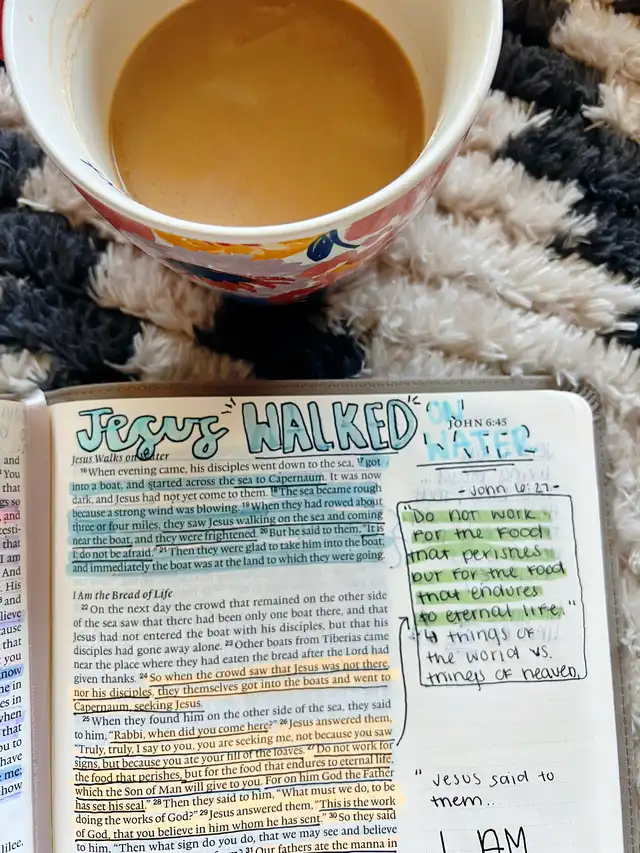 and
You
that
gs so
, and
esti-
that
I am
And
His
and
lieve
cause
that
t you
know
me in
es in
when
that
ou to
have
me;
how
lilee.
Jesus WALKED ON WATER
JOHN 6:45
Jesus Walks on Water
16 When evening came, his disciples went down to the sea, 17 got
into a boat, and started across the sea to Capernaum. It was now
dark, and Jesus had not yet come to them. 18 The sea became rough
because a strong wind was blowing. 19 When they had rowed about
three or four miles, they saw Jesus walking on the sea and coming
near the boat, and they were frightened. 20 But he said to them, "It is
I; do not be afraid." 21 Then they were glad to take him into the boat,
and immediately the boat was at the land to which they were going.
I Am the Bread of Life
22 On the next day the crowd that remained on the other side
of the sea saw that there had been only one boat there, and that
Jesus had not entered the boat with his disciples, but that his
disciples had gone away alone. 23 Other boats from Tiberias came
near the place where they had eaten the bread after the Lord had
given thanks. 24 So when the crowd saw that Jesus was not there,
nor his disciples, they themselves got into the boats and went to
Capernaum, seeking Jesus.
25 When they found him on the other side of the sea, they said
to him, "Rabbi, when did you come here?" 26 Jesus answered them,
"Truly, truly, I say to you, you are seeking me, not because you saw
signs, but because you ate your fill of the loaves. 27 Do not work for
the food that perishes, but for the food that endures to eternal life,
which the Son of Man will give to you. For on him God the Father
has set his seal." 28 Then they said to him, "What must we do, to be
doing the works of God?" 29 Jesus answered them, "This is the work
of God, that you believe in him whom he has sent." 30 So they said
to him, "Then what sign do you do, that we may see and believe
31 Our fathers ate the manna in
- John 6:27 -
"Do not work
for the food
that perishes
but for the food
that endures
to eternal life."
↳ things of
the world vs.
things of heaven.
"Jesus said to
them..
I AM